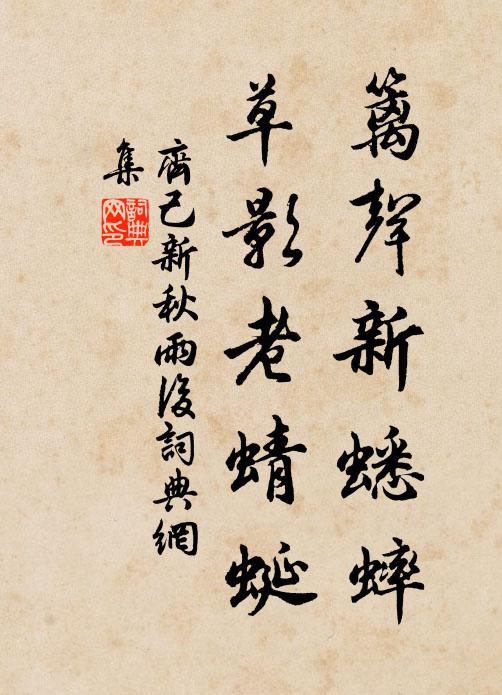 籬聲新蟋蟀
草影老蜻蜓
齊己新秋雨後詞典網
集
詞典
网印